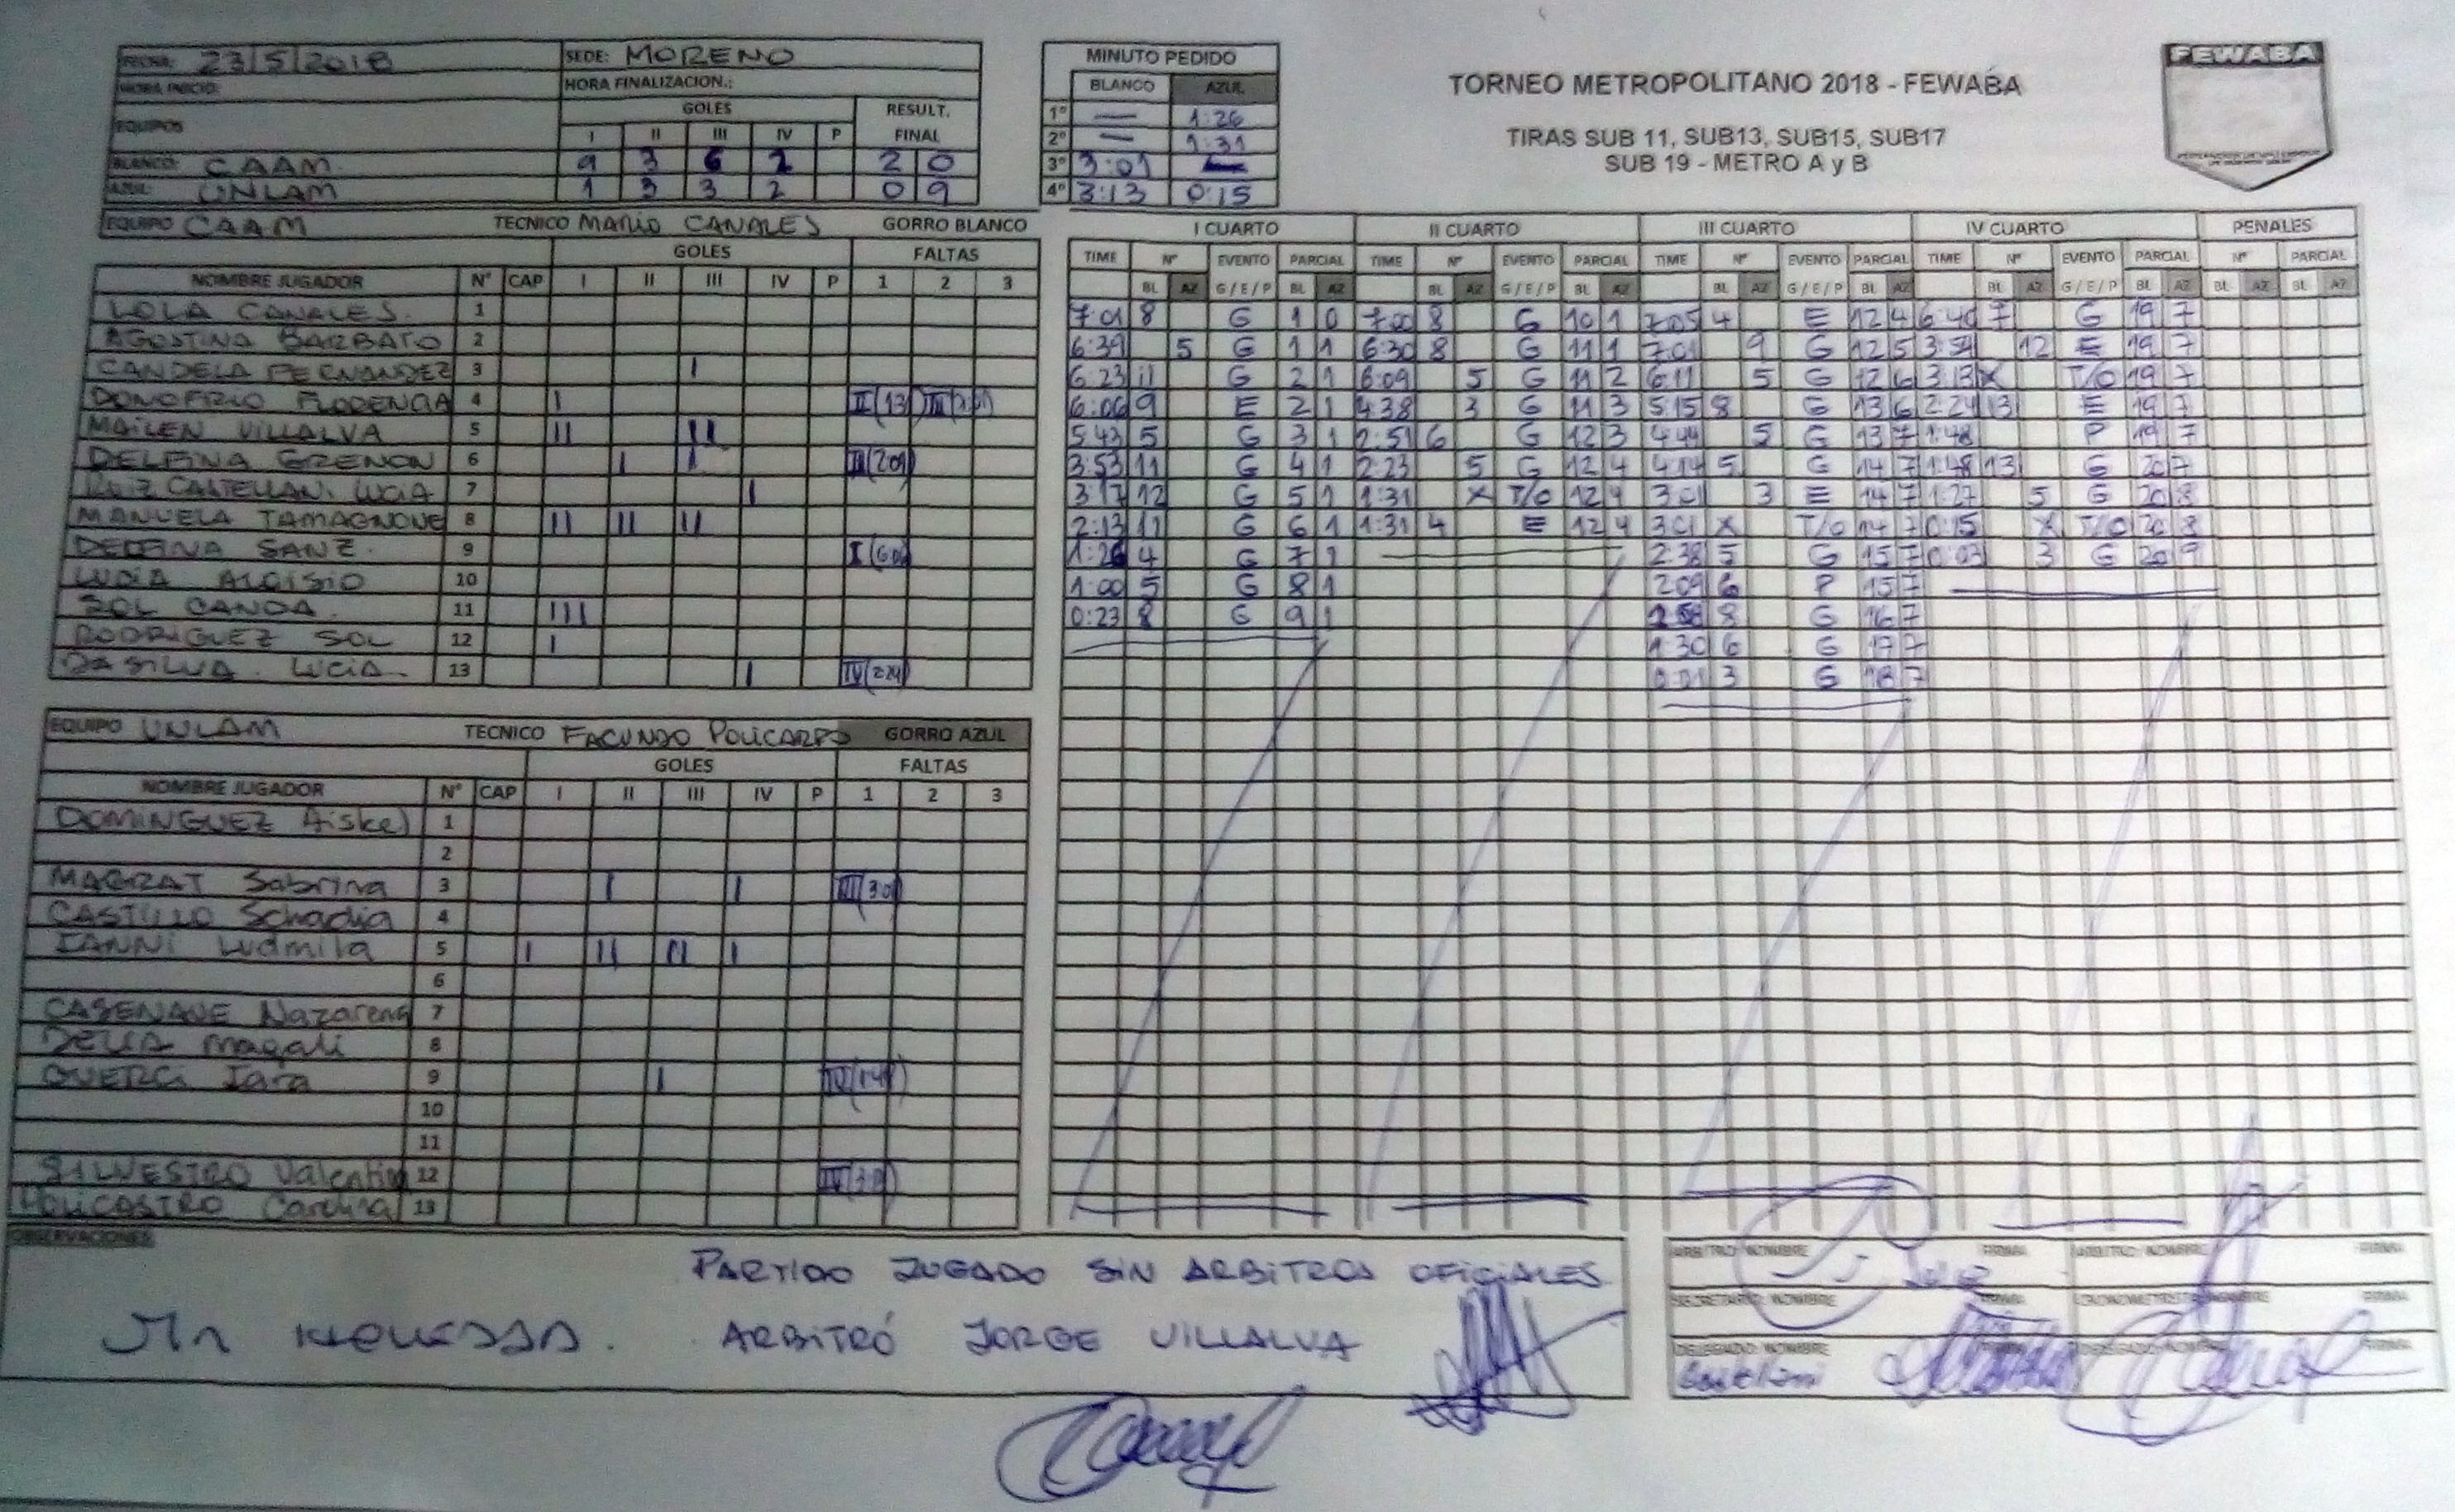 FECHA: 23/5/2018 SEDE: MORENO
HORA INICIO: HORA FINALIZACION.:
EQUIPOS GOLES RESULT. FINAL
I II III IV P
BLANCO: CAAM. 9 3 6 2 2 0
AZUL: UNLAM 1 3 3 2 0 9
MINUTO PEDIDO
BLANCO AZUL
1º — 1:26
2º — 1:31
3º 3:01 —
4º 3:13 0:15
TORNEO METROPOLITANO 2018 - FEWABA
TIRAS SUB 11, SUB13, SUB15, SUB17
SUB 19 - METRO A y B
FEWABA
EQUIPO CAAM TECNICO MARIO CANALES GORRO BLANCO
GOLES FALTAS
NOMBRE JUGADOR Nº CAP I II III IV P 1 2 3
LOLA CANALES. 1
AGOSTINA BARBATO 2
CANDELA FERNANDEZ 3 I
DONOFRIO FLORENCIA 4 I
MAILEN VILLALVA 5 II II
DELFINA GRENON 6 I I III(2:09)
RUIZ CASTELLANI LUCIA 7 I
MANUELA TAMAGNONE 8 II II II
DELFINA SANZ. 9 I(6:06)
LUCIA ALOISIO 10
SOL CANDA. 11 III
RODRIGUEZ SOL 12 I
DASILVA. LUCIA. 13 I IV(2:24)
EQUIPO UNLAM TECNICO FACUNDO POLICARPO GORRO AZUL
GOLES FALTAS
NOMBRE JUGADOR Nº CAP I II III IV P 1 2 3
DOMINGUEZ Aiskel 1
2
MAGRAT Sabrina 3 I I III(3:01)
CASTILLO Schadia 4
IANNI Ludmila 5 I II II I
6
CASENAVE Nazarena 7
DELIA Magali 8
QUERCI Iara 9 I
10
11
SILVESTRO Valentina 12
POLICASTRO Carolina 13
I CUARTO
TIME Nº EVENTO PARCIAL
BL AZ G/E/P BL AZ
7:01 8 G 1 0
6:39 5 G 1 1
6:23 11 G 2 1
6:06 9 E 2 1
5:43 5 G 3 1
3:53 11 G 4 1
3:17 12 G 5 1
2:13 11 G 6 1
1:26 4 G 7 1
1:00 5 G 8 1
0:23 8 G 9 1
II CUARTO
TIME Nº EVENTO PARCIAL
BL AZ G/E/P BL AZ
7:00 8 G 10 1
6:30 8 G 11 1
6:09 5 G 11 2
4:38 3 G 11 3
2:51 6 G 12 3
2:23 5 G 12 4
1:31 X T/O 12 4
1:31 4 E 12 4
III CUARTO
TIME Nº EVENTO PARCIAL
BL AZ G/E/P BL AZ
7:05 4 E 12 4
7:01 9 G 12 5
6:11 5 G 12 6
5:15 8 G 13 6
4:44 5 G 13 7
4:14 5 G 14 7
3:01 3 E 14 7
3:01 X T/O 14 7
2:38 5 G 15 7
2:09 6 P 15 7
8 G 16 7
1:30 6 G 17 7
0:01 3 G 18 7
IV CUARTO
TIME Nº EVENTO PARCIAL
BL AZ G/E/P BL AZ
6:40 7 G 19 7
12 E 19 7
3:13 X T/O 19 7
2:24 13 E 19 7
1:48 P 19 7
1:48 13 G 20 7
1:27 5 G 20 8
0:15 X T/O 20 8
0:03 3 G 20 9
PENALES
Nº PARCIAL
BL AZ BL AZ
OBSERVACIONES:
PARTIDO JUGADO SIN ARBITROS OFICIALES
ARBITRÓ JORGE VILLALVA
ARBITRO/NOMBRE FIRMA ARBITRO/NOMBRE FIRMA
SECRETARIO/NOMBRE FIRMA CRONOMETRISTA/NOMBRE FIRMA
DELEGADO/NOMBRE FIRMA DELEGADO/NOMBRE FIRMA